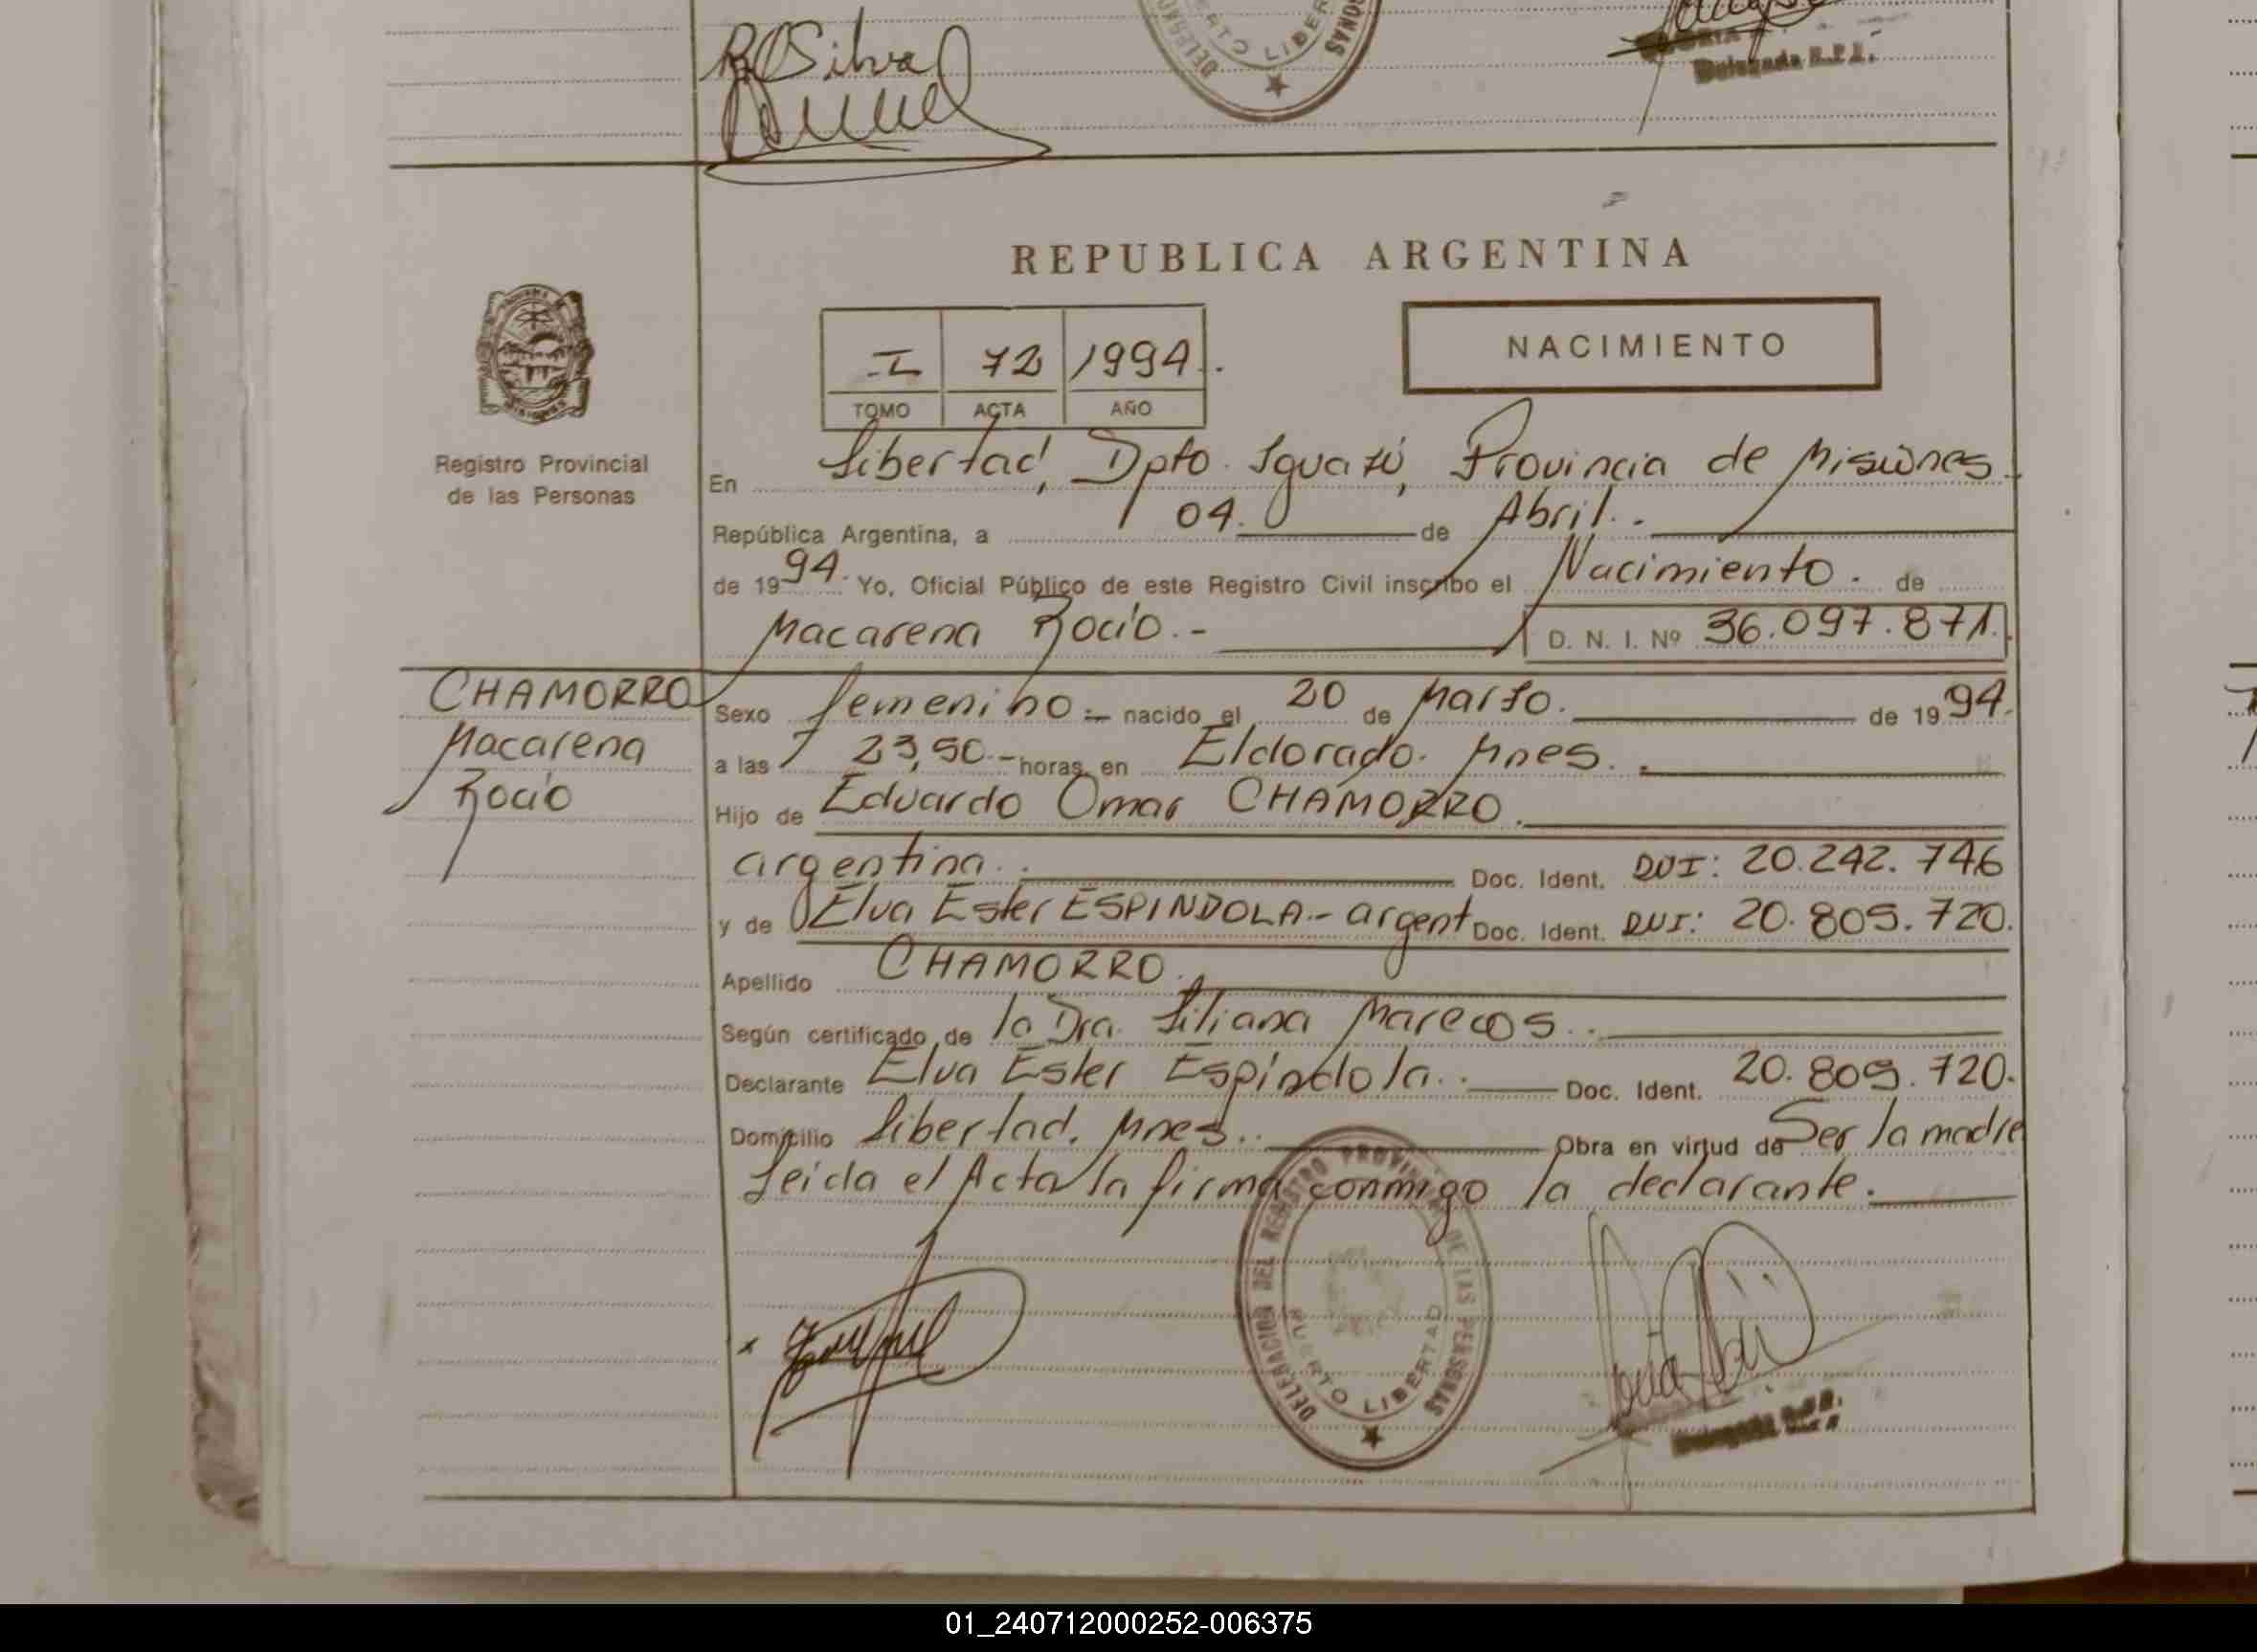 R Silva
PUERTO LIBERTAD
Delegada R.P.P.
REPUBLICA ARGENTINA
I 72 1994.
TOMO ACTA AÑO
NACIMIENTO
Registro Provincial
de las Personas
En Libertad, Dpto. Iguazú, Provincia de Misiones
República Argentina, a 04. de Abril.
de 1994. Yo, Oficial Público de este Registro Civil inscribo el Nacimiento. de
Macarena Rocío.- D. N. I. Nº 36.097.871.
CHAMORRO
Macarena
Rocío
Sexo femenino.- nacido el 20 de Marzo. de 1994.
a las 23,50.- horas en Eldorado. Mnes.
Hijo de Eduardo Omar CHAMORRO.
argentina. Doc. Ident. DUI: 20.242.746
y de Elva Ester ESPINDOLA.- argent Doc. Ident. DUI: 20.809.720.
Apellido CHAMORRO.
Según certificado de la Dra. Liliana Marecos.
Declarante Elva Ester Espíndola. Doc. Ident. 20.809.720.
Domicilio Libertad. Mnes. Obra en virtud de Ser la madre
Leida el Acta la firma conmigo la declarante.
DELEGACION DEL REGISTRO PROVINCIAL DE LAS PERSONAS
PUERTO LIBERTAD
Delegada
01_240712000252-006375